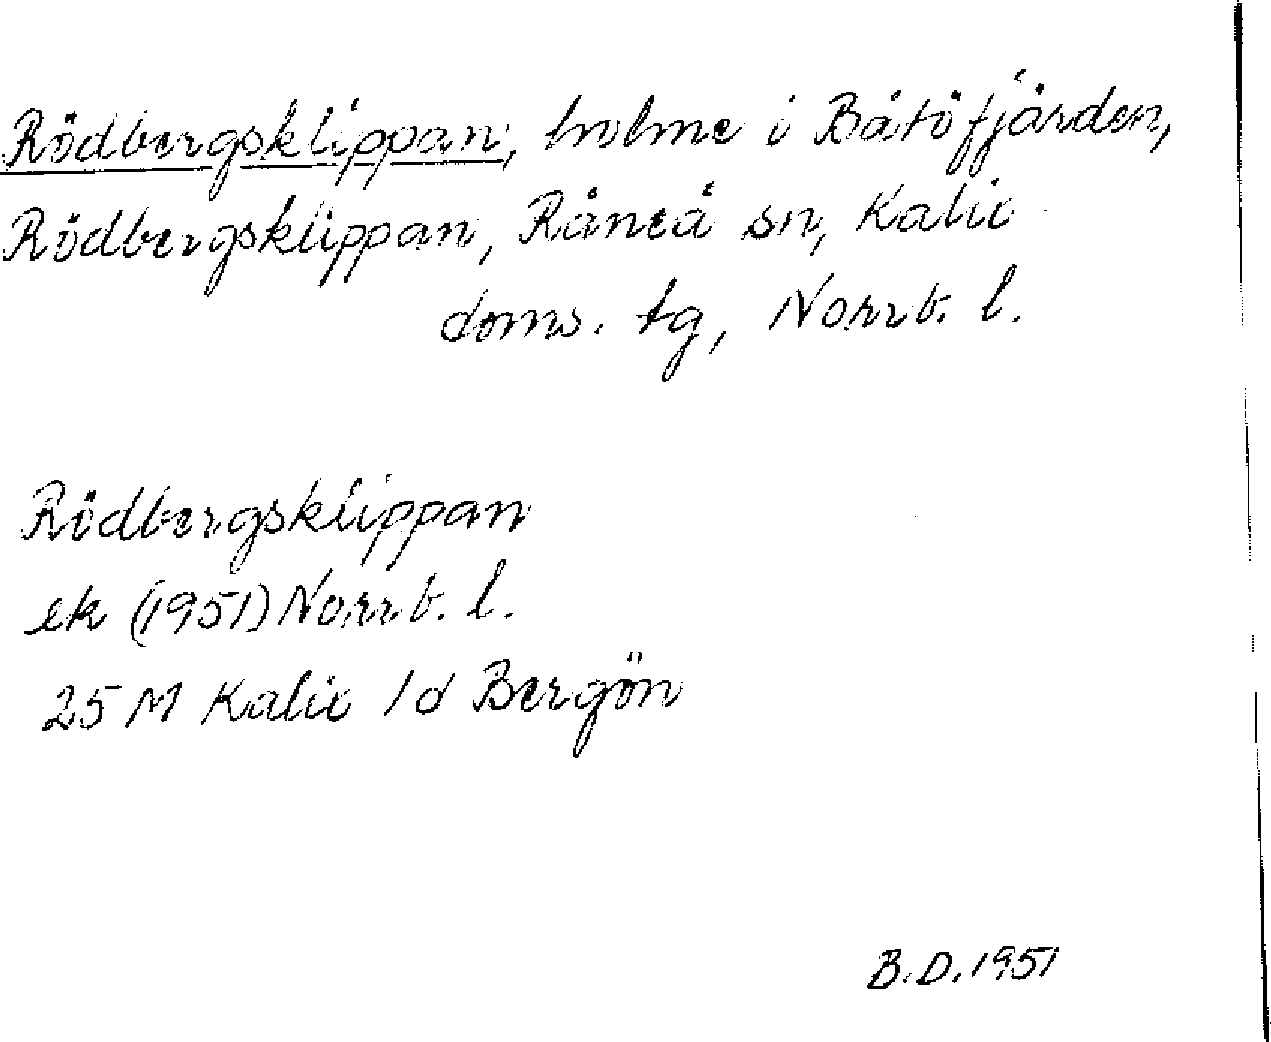 Rödbergsklippan, holme i Båtöfjärden,
Rödbergsklippan, Råneå sn, Kalix
doms. tg, Norrb. l.
Rödbergsklippan
ek (1951) Norrb. l.
25 M Kalix 1d Bergön
B.D. 1951